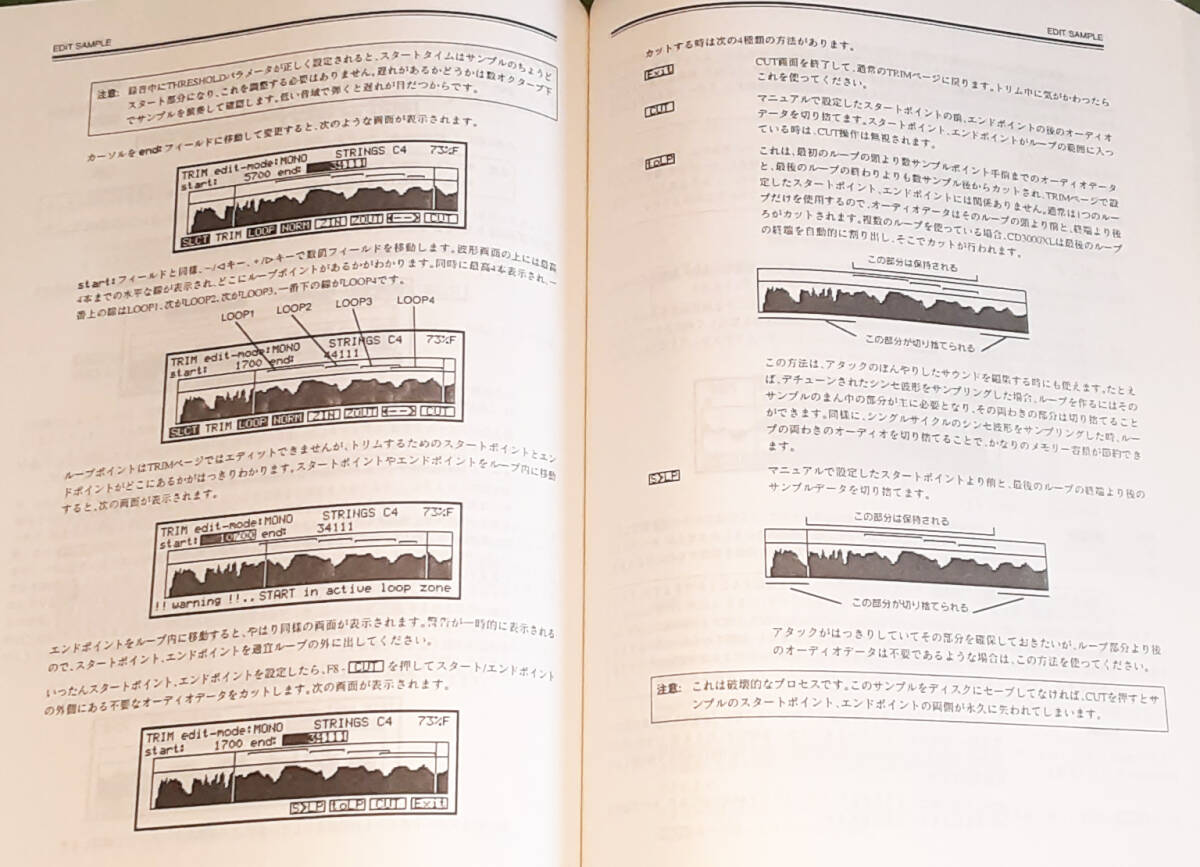 EDIT SAMPLE
注意: 録音中にTHRESHOLDパラメータが正しく設定されると、スタートタイムはサンプルのちょうど
スタート部分になり、これを調整する必要はありません。遅れがあるかどうかは数オクターブ下
でサンプルを演奏して確認します。低い音域で弾くと遅れが目だつからです。
カーソルをend:フィールドに移動して変更すると、次のような画面が表示されます。
TRIM edit-mode:MONO STRINGS C4 73%F
start: 5700 end: 34111
SLCT TRIM LOOP NORM ZIN ZOUT <--> CUT
start:フィールドと同様、-/◁キー、+/▷キーで数値フィールドを移動します。波形画面の上には最高
4本までの水平な線が表示され、どこにループポイントがあるかがわかります。同時に最高4本表示され、一
番上の線はLOOP1、次がLOOP2、次がLOOP3、一番下の線がLOOP4です。
LOOP1 LOOP2 LOOP3 LOOP4
TRIM edit-mode:MONO STRINGS C4 73%F
start: 1700 end: 44111
SLCT TRIM LOOP NORM ZIN ZOUT <--> CUT
ループポイントはTRIMページではエディットできませんが、トリムするためのスタートポイントとエン
ドポイントがどこにあるかがはっきりわかります。スタートポイントやエンドポイントをループ内に移動
すると、次の画面が表示されます。
TRIM edit-mode:MONO STRINGS C4 73%F
start: 10700 end: 34111
!! warning !!.. START in active loop zone
エンドポイントをループ内に移動すると、やはり同様の画面が表示されます。警告が一時的に表示される
ので、スタートポイント、エンドポイントを適宜ループの外に出してください。
いったんスタートポイント、エンドポイントを設定したら、F8 - CUT を押してスタート/エンドポイント
の外側にある不要なオーディオデータをカットします。次の画面が表示されます。
TRIM edit-mode:MONO STRINGS C4 73%F
start: 1700 end: 34111
S>LP toLP CUT Exit
EDIT SAMPLE
カットする時は次の4種類の方法があります。
Exit CUT画面を終了して、通常のTRIMページに戻ります。トリム中に気がかわったら
これを使ってください。
CUT マニュアルで設定したスタートポイントの前、エンドポイントの後のオーディオ
データを切り捨てます。スタートポイント、エンドポイントがループの範囲に入っ
ている時は、CUT操作は無視されます。
toLP これは、最初のループの頭より数サンプルポイント手前までのオーディオデータ
と、最後のループの終わりよりも数サンプル後からカットされ、TRIMページで設
定したスタートポイント、エンドポイントには関係ありません。通常は1つのルー
プだけを使用するので、オーディオデータはそのループの頭より前と、終端より後
ろがカットされます。複数のループを使っている場合、CD3000XLは最後のループ
の終端を自動的に割り出し、そこでカットが行われます。
この部分は保持される
この部分が切り捨てられる
この方法は、アタックのぼんやりしたサウンドを編集する時にも使えます。たとえ
ば、デチューンされたシンセ波形をサンプリングした場合、ループを作るにはその
サンプルのまん中の部分が主に必要となり、その両わきの部分は切り捨てること
ができます。同様に、シングルサイクルのシンセ波形をサンプリングした時、ルー
プの両わきのオーディオを切り捨てることで、かなりのメモリー容量が節約でき
ます。
S>LP マニュアルで設定したスタートポイントより前と、最後のループの終端より後の
サンプルデータを切り捨てます。
この部分は保持される
この部分が切り捨てられる
アタックがはっきりしていてその部分を確保しておきたいが、ループ部分より後
のオーディオデータは不要であるような場合は、この方法を使ってください。
注意: これは破壊的なプロセスです。このサンプルをディスクにセーブしてなければ、CUTを押すとサ
ンプルのスタートポイント、エンドポイントの両側が永久に失われてしまいます。